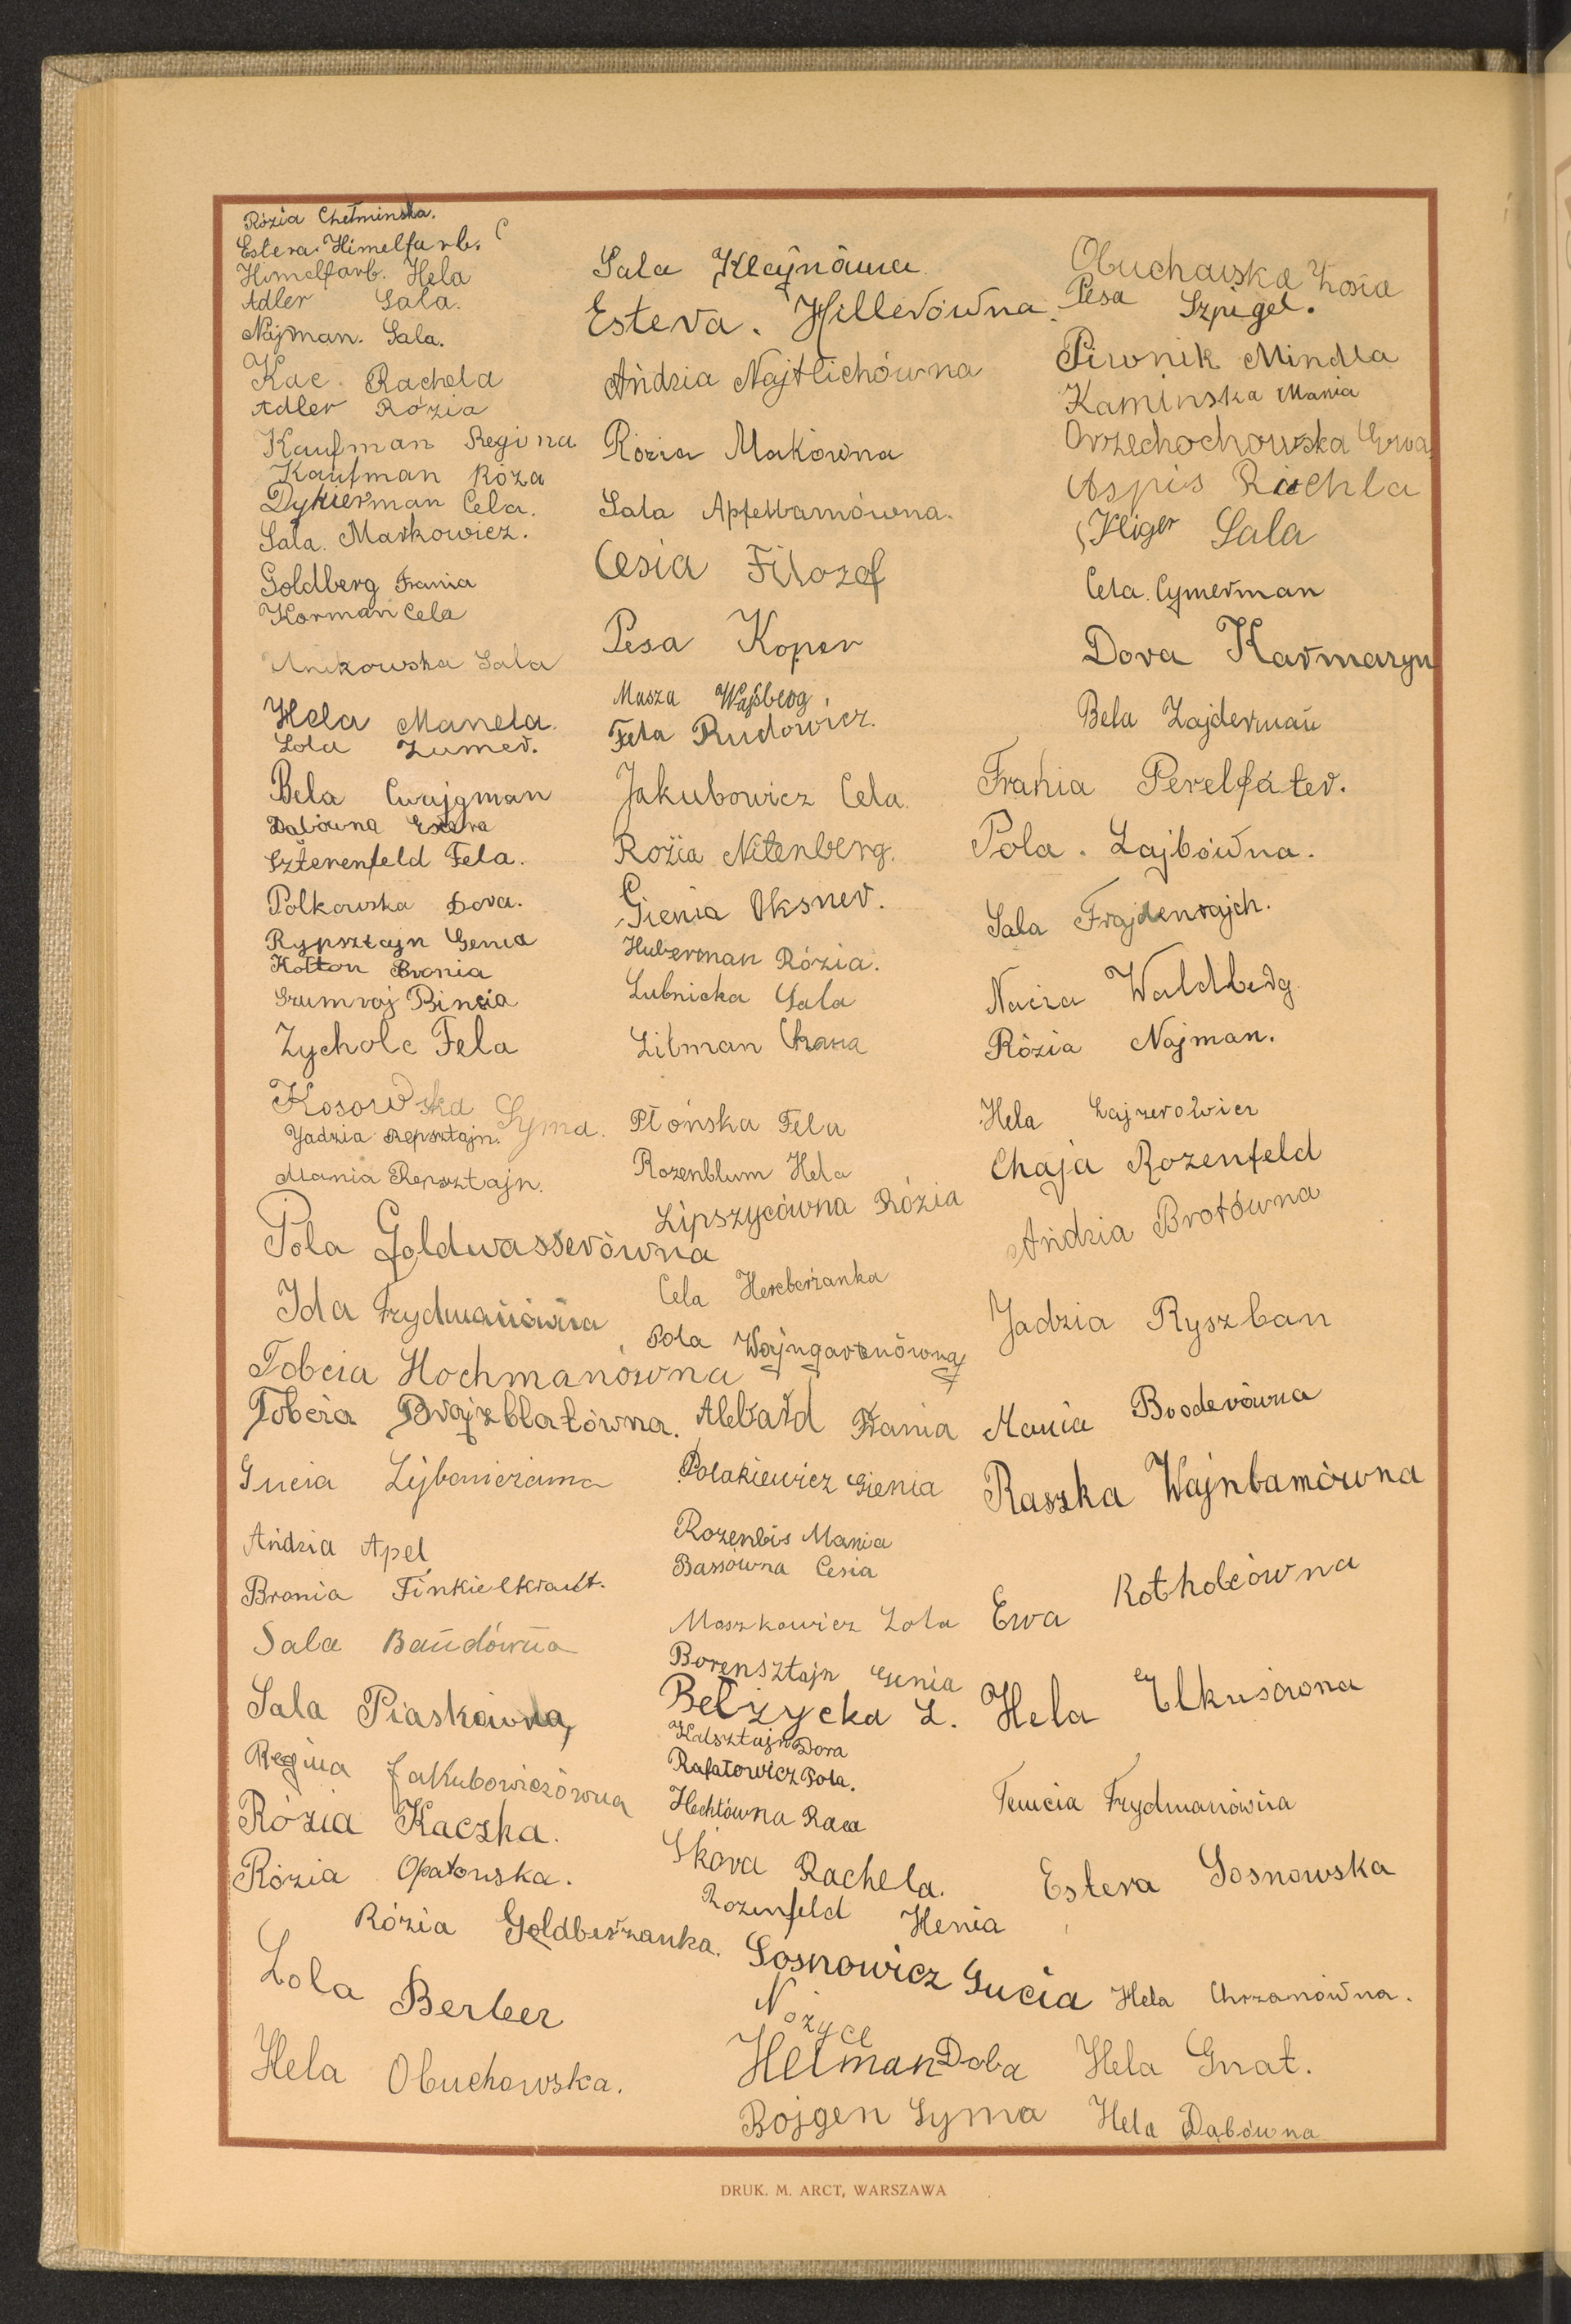 Rózia Chełminska.
Estera Himelfarb.
Himelfarb. Hela
Adler Sala.
Najman. Sala.
Kac. Rachela
Adler Rózia
Kaufman Regina
Kaufman Róza
Dykierman Cela.
Sala. Markowicz.
Goldberg Frania
Korman Cela
Sala
Hela Manela.
Lola Zumer.
Bela Cwajgman
Dabówna Estera
Szterenfeld Fela.
Polkowska Dora.
Rypsztajn Genia
Kołton Bronia
Grumraj Bincia
Zycholc Fela
Kosowska Syma.
Jadzia Repsztajn.
Mania Repsztajn.
Pola Goldwasserówna
Ida Frydmanówna
Tobcia Hochmanówna
Tobcia Brajzblatówna.
Gucia
Andzia Apel
Bronia Finkielkraut.
Sala Bandówna
Sala Piaskówna
Regina Jakubowiczówna
Rózia Kaczka.
Rózia Opatowska.
Rózia Goldberżanka.
Lola Berber
Hela Obuchowska.
Sala Klajnówna
Estera. Hillerówna.
Andzia Najtlichówna
Rózia Makówna
Sala Apfelbamówna.
Cesia Filozof
Pesa Koper
Masza Wajsberg
Fela Rudowicz.
Jakubowicz Cela.
Rózia Nitenberg.
Gienia Oksner.
Huberman Rózia.
Lubnicka Sala
Litman Chana
Płońska Fela
Rozenblum Hela
Lipszycówna Rózia
Cela Hercberżanka
Pola Wajngartenówna
Alebard Frania
Polakiewicz Gienia
Rozenbis Mania
Bassówna Cesia
Moszkowicz Lola
Borensztajn Genia
Bełżycka L.
Kalsztajn Dora
Rafałowicz Pola.
Hechtówna Raca
Skóra Rachela.
Rozenfeld Henia
Sosnowicz Gucia
Nożyce
Helman Doba
Bojgen Syma
Obuchowska Zosia
Pesa Szpigel.
Piwnik Mindla
Kaminska Mania
Orzechochowska Ewa
Aspis Ruchla
Kliger Sala
Cela. Cymerman
Dora Karmazyn
Bela Zajderman
Frania Perelfater.
Pola. Lajbówna.
Sala Frajdenrajch.
Nacia Waldberg
Rózia Najman.
Hela Lajzerowicz
Chaja Rozenfeld
Andzia Brotówna
Jadzia Ryszban
Mania Broderówna
Raszka Wajnbamówna
Ewa Rotholcówna
Hela Elkusówna
Temcia Frydmanówna
Estera Sosnowska
Hela Chrzanówna.
Hela Gnat.
Hela Dąbówna
DRUK. M. ARCT, WARSZAWA